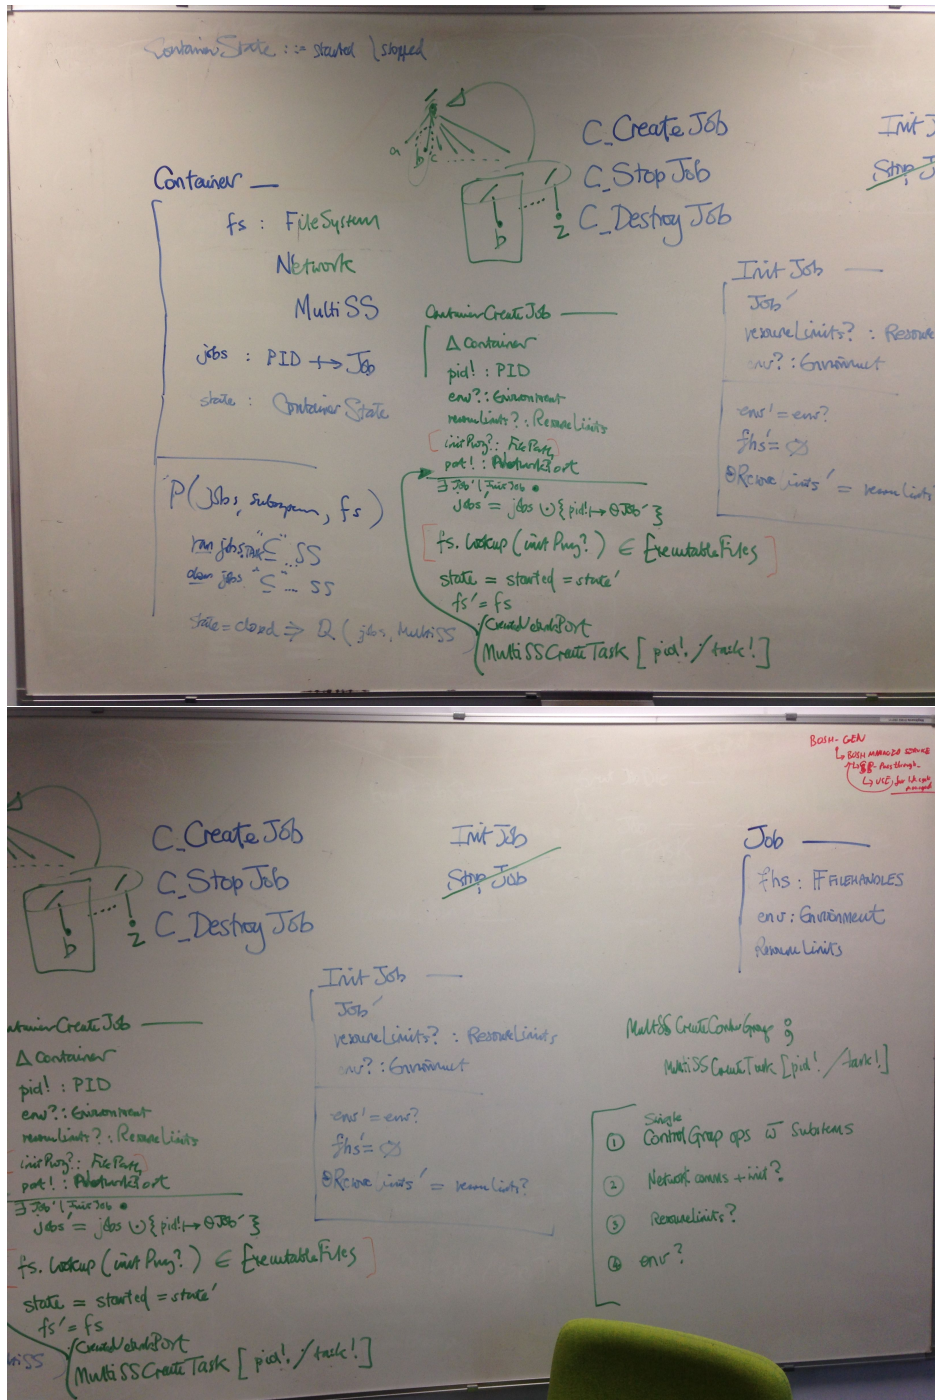 ContainerState ::= started | stopped
Δ
a b c
b
z
C_CreateJob
C_StopJob
C_DestroyJob
Init J
Stop J
Container
fs : FileSystem
Network
MultiSS
jobs : PID ⤔ Job
state : ContainerState
P(jobs, subsystem, fs)
ran jobs.TASK "⊆" .. SS
dom jobs "⊆" ... SS
state = closed ⇒ Q (jobs, MultiSS
ContainerCreateJob
Δ Container
pid! : PID
env? : Environment
resourceLimits? : ResourceLimits
[ initProg? : FilePath ]
port! : NetworkPort
∃ Job' | InitJob •
jobs' = jobs ∪ { pid! ↦ θJob' }
[ fs.Lookup (initProg?) ∈ ExecutableFiles ]
state = started = state'
fs' = fs
CreateNetworkPort
MultiSSCreateTask [ pid! / task! ]
Init Job
Job'
resourceLimits? : Resource
env? : Environment
env' = env?
fhs' = ∅
θResourceLimits' = resourceLimits
BOSH-GEN
↳ BOSH MANAGED SERVICE
Pass through
C_CreateJob
C_StopJob
C_DestroyJob
b
z
Init Job
Stop Job
Job
fhs : F FILEHANDLES
env : Environment
ResourceLimits
Init Job
Job'
resourceLimits? : ResourceLimits
env? : Environment
env' = env?
fhs' = ∅
θResourceLimits' = resourceLimits?
ntainerCreateJob
Δ Container
pid! : PID
env? : Environment
resourceLimits? : ResourceLimits
initProg? : FilePath ]
port! : NetworkPort
∃ Job' | InitJob •
jobs' = jobs ∪ { pid! ↦ θJob' }
fs.Lookup (initProg?) ∈ ExecutableFiles ]
state = started = state'
fs' = fs
CreateNetworkPort
MultiSSCreateTask [ pid! / task! ]
tiSS
MultiSSCreateControlGroup ;
MultiSSCreateTask [pid! / task!]
Single
① ControlGroup ops w̄ Subsystems
② Network comms + init?
③ ResourceLimits?
④ env?